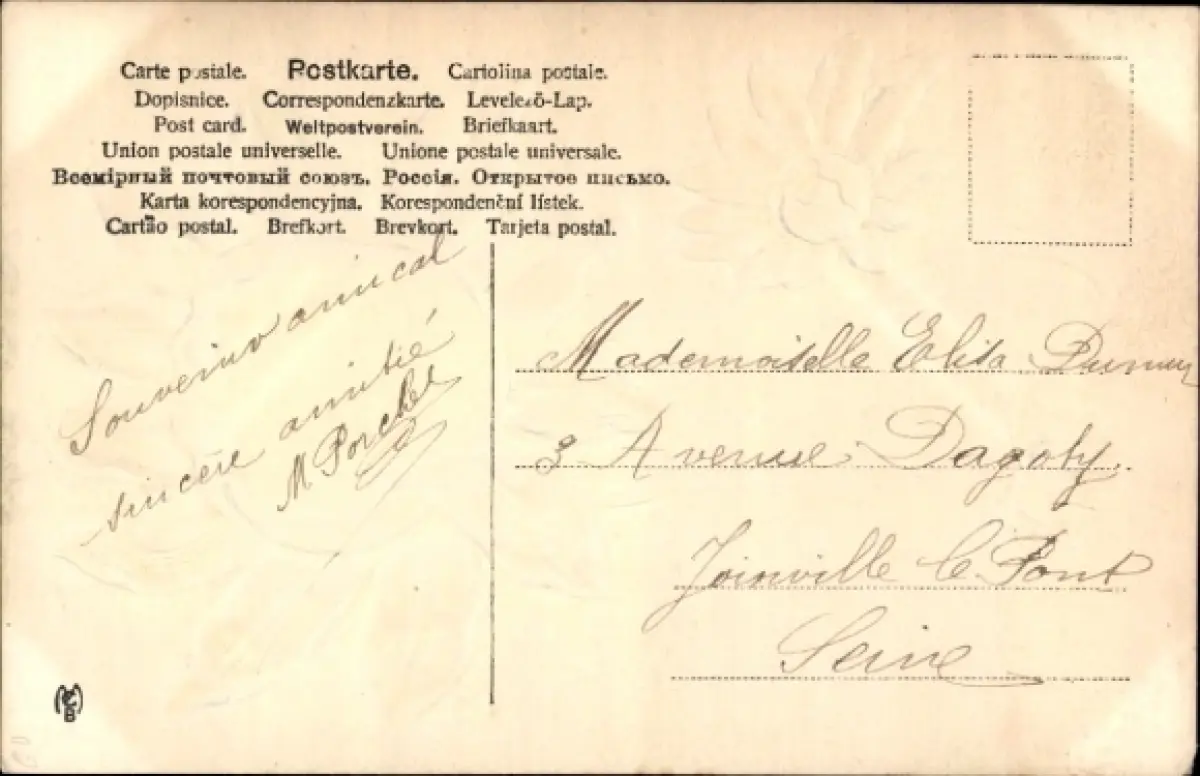 Carte postale. Postkarte. Cartolina postale.
Dopisnice. Correspondenzkarte. Levelező-Lap.
Post card. Weltpostverein. Briefkaart.
Union postale universelle. Unione postale universale.
Всемірный почтовый союзъ. Россія. Открытое письмо.
Karta korespondencyjna. Korespondenční lístek.
Cartão postal. Brefkort. Brevkort. Tarjeta postal.
Souvenir amical
sincère amitié
M Porcher
Mademoiselle Elisa
3 Avenue Dagoty.
Joinville le Pont
Seine